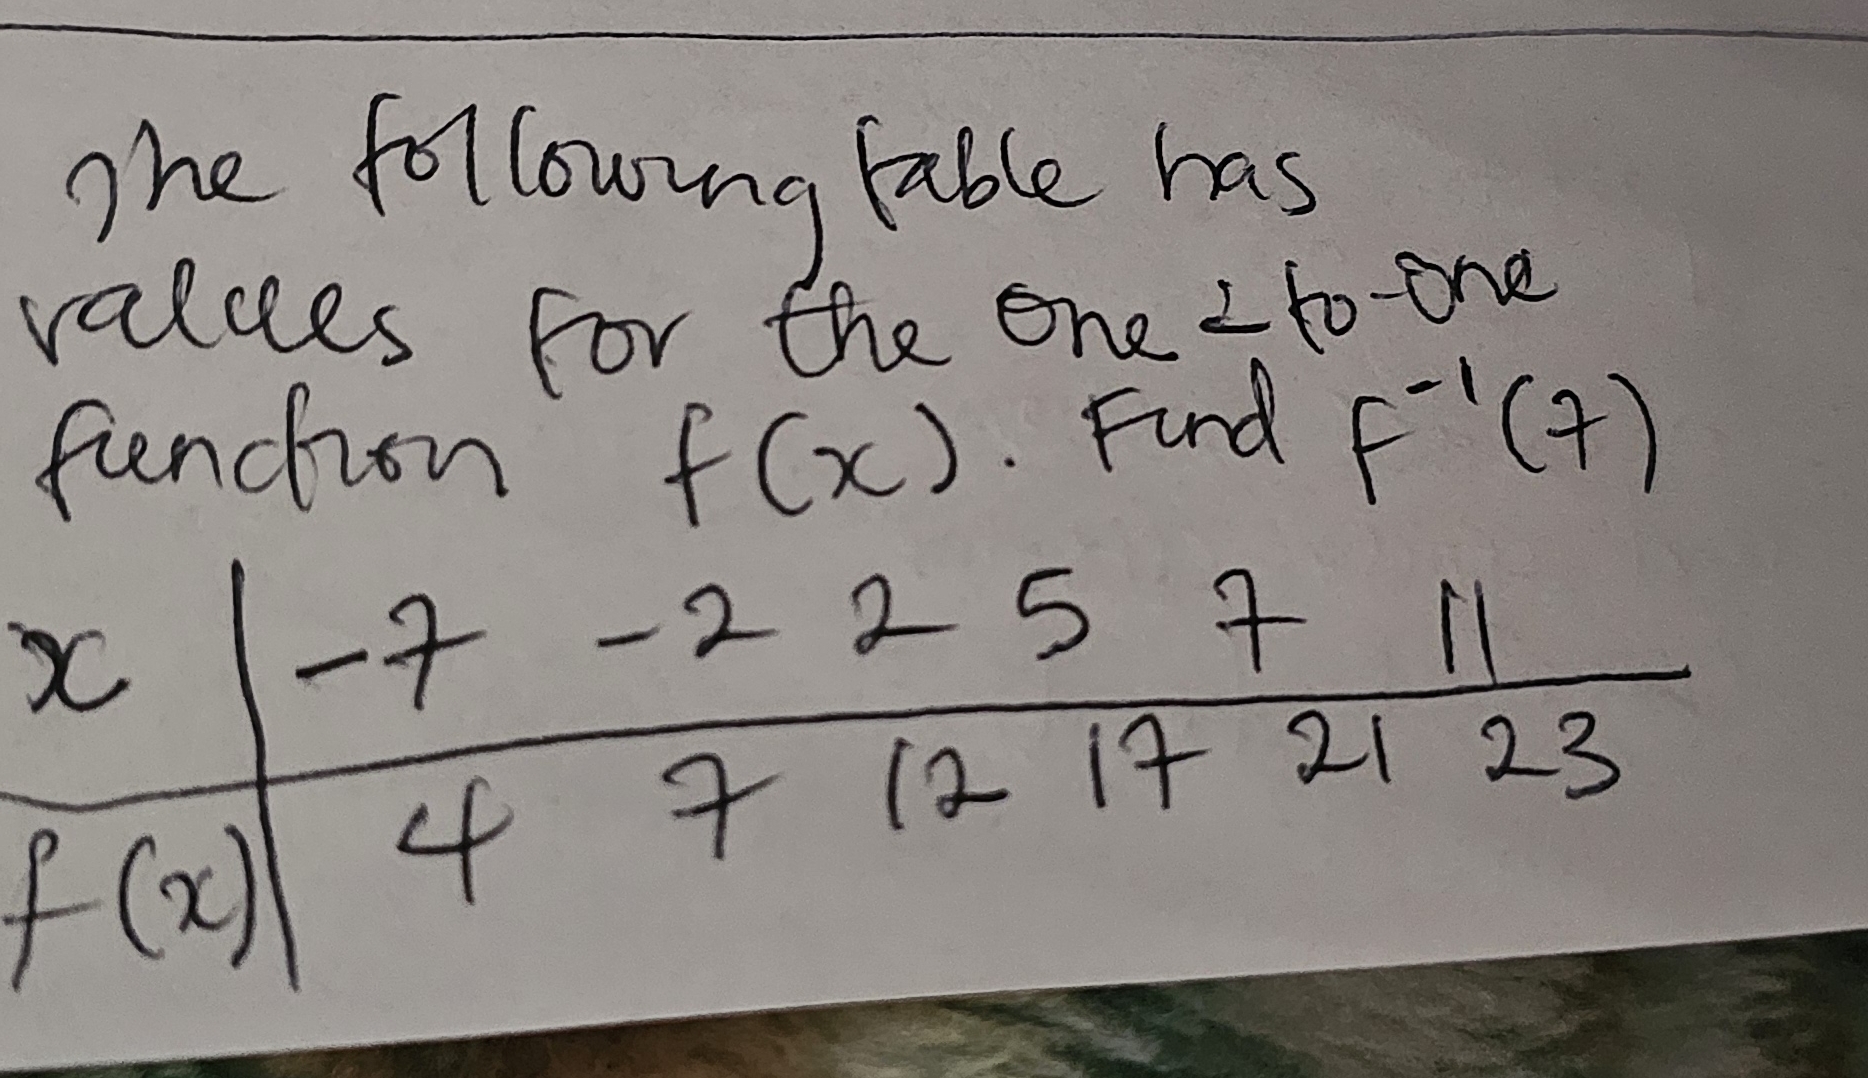 The following table has
values for the one - to-one
function f(x). Find F⁻¹(7)
x | -7 -2 2 5 7 11
f(x) | 4 7 12 17 21 23